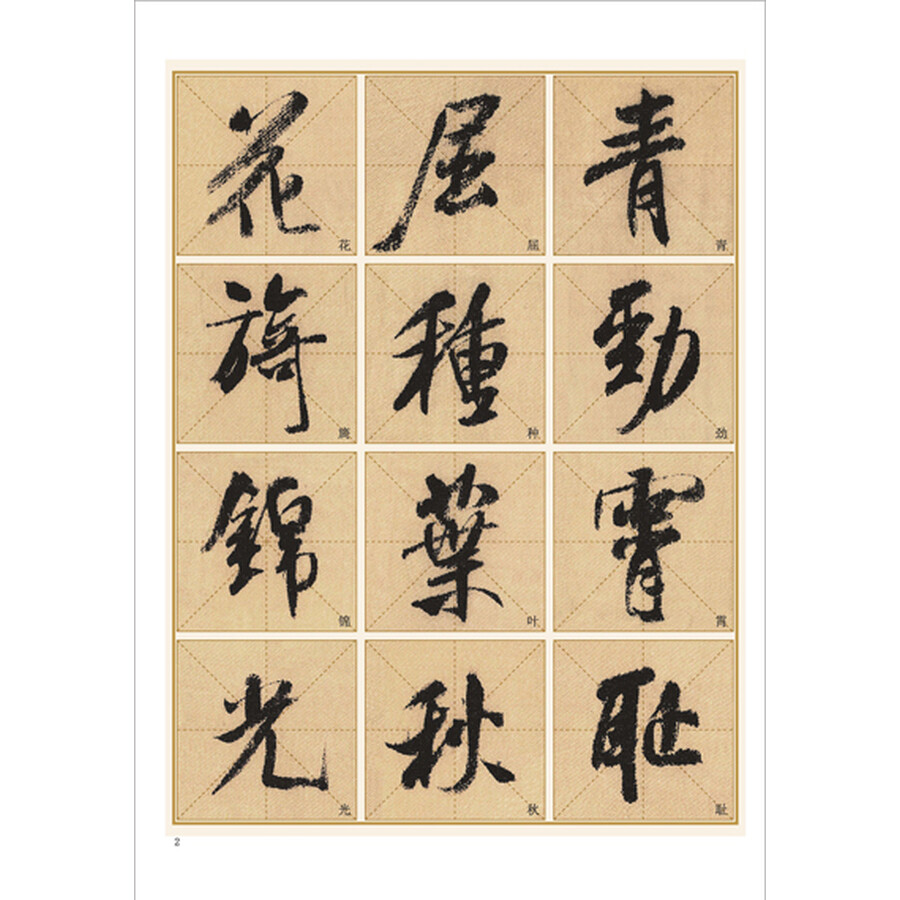 青勁霄耻
青劲霄耻
屈種葉秋
屈种叶秋
花旖錦光
花旖锦光
2